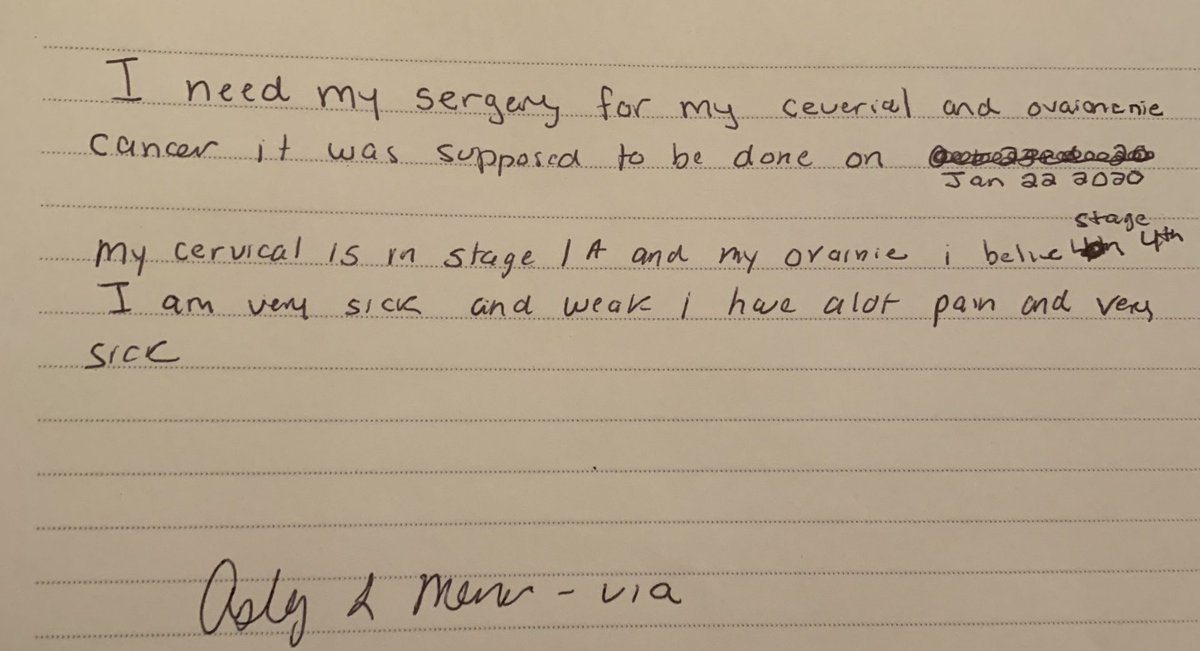 I need my sergery for my ceverial and ovaionenie
cancer it was supposed to be done on
Jan 22 2020
stage
my cervical is in stage 1A and my orainie i belive 4th
I am very sick and weak i have alot pain and very
sick
- via